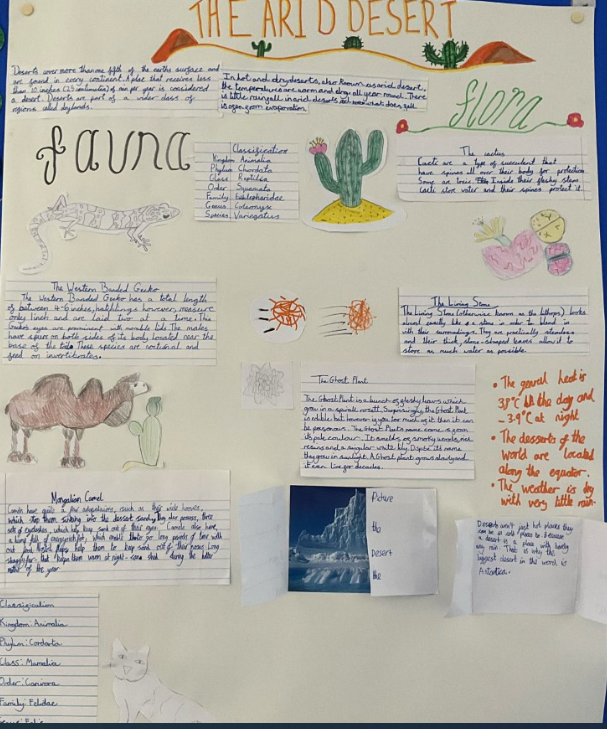 THE ARID DESERT
Deserts cover more than one fifth of the earths surface and
are found in every continent. A place that receives less
than 10 inches (25 centimetres) of rain per year is considered
a desert. Deserts are part of a wider class of
regions called drylands.
In hot and dry deserts, also known as arid desert,
the temperatures are warm and dry all year round. There
is little rainfall in arid deserts and what does fall
is often evaporation
flora
fauna
Classification
Kingdom: Animalia
Phylum: Chordata
Class: Reptilia
Order: Squamata
Family: Eublepharidae
Genus: Coleonyx
Species: Variegatus
The cactus
Cacti are a type of succulent that
have spines all over their body for protection
Some are toxic. Inside their fleshy stems
cacti store water and their spines protect it.
The Western Banded Gecko
The Western Banded Gecko has a total length
of between 4-6 inches, hatchlings however, measure
only 1 inch and are laid two at a time. The
Geckos eyes are prominent with movable lids. The males
have spurs on both sides of its body, located near the
base of the tail. These species are nocturnal and
feed on invertebrates.
The Living Stone
The Living Stone (otherwise known as the lithops) looks
almost exactly like a stone in order to blend in
with their surroundings. They are practically stemless
and their thick, stone-shaped leaves allow it to
store as much water as possible.
The Ghost Plant
The Ghost Plant is a bunch of fleshy leaves which
grow in a spiral rosett. Surprisingly, the Ghost Plant
is edible but however if you have much of it then it can
be poisonous. The Ghost Plants name comes from
its pale colour. It smells of smokey woods, rich
resins and a singular white lily. Dispite its name
they grow in sunlight. A Ghost plant grows slowly and
it can live for decades.
• The general heat is
38°C in the day and
-3.9°C at night
• The desserts of the
world are located
along the equator.
• The weather is dry
with very little rain.
Mongolian Camel
Camels have quite a few adaptations, such as their wide hooves,
which stop them sinking into the dessert sandy. They also possess, three
sets of eyelashes, which help keep sand out of their eyes. Camels also have
a hump full of, which enable them for long periods of time with
out food. Nostril flaps help them to keep sand out of their noses. Long
shaggy fur that keeps them warm at night - some shed during the hotter
months of the year.
Picture
the
Desert
the
Deserts aren't just hot places they
can be as cold places to. Because
a desert is a place with hardly
any rain. That is why the
biggest desert in the world is
Antartica.
Classification
Kingdom: Animalia
Phylum: Cordata
Class: Mamalia
Order: Carnivora
Family: Felidae